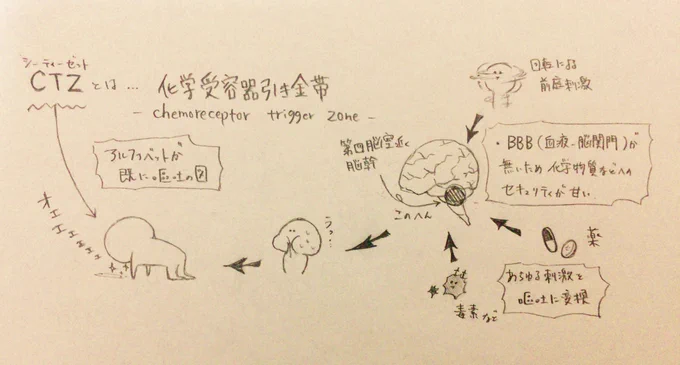 シーティーゼット
CTZ とは… 化学受容器引き金帯
- chemoreceptor trigger zone -
アルファベットが
既に嘔吐の図
オエエエェェェ
うっ…
第四脳室近く
脳幹
このへん
回転による
前庭刺激
・BBB(血液-脳関門)が
無いため化学物質などへの
セキュリティが甘い
薬
毒素など
あらゆる刺激を
嘔吐に変換